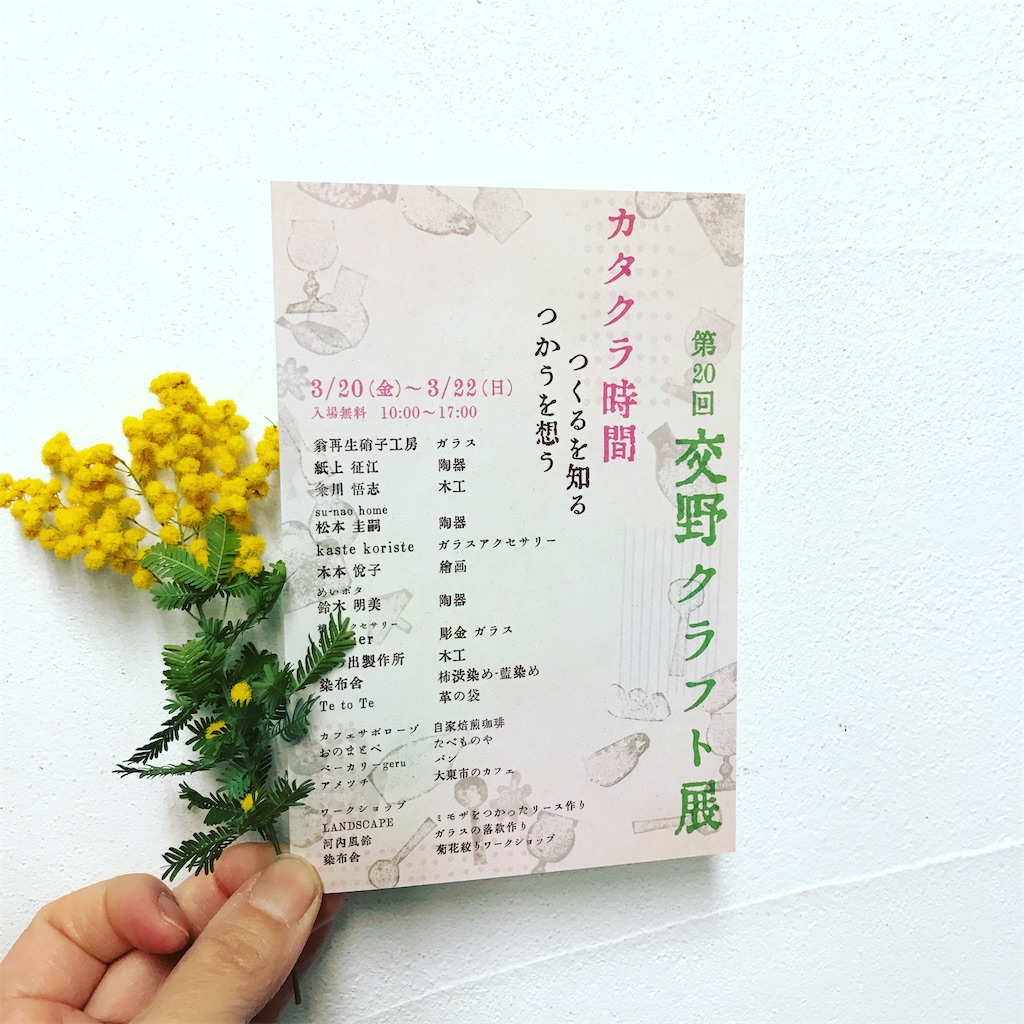 第20回 交野クラフト展
カタクラ時間
つくるを知る
つかうを想う
3/20(金)～3/22(日)
入場無料 10:00～17:00
翁再生硝子工房 ガラス
紙上 征江 陶器
粂川 悟志 木工
su-nao home
松本 圭嗣 陶器
kaste koriste ガラスアクセサリー
木本 悅子 繪画
めいポタ
鈴木 明美 陶器
アクセサリー
er 彫金 ガラス
出製作所 木工
染布舎 柿渋染め・藍染め
Te to Te 革の袋
カフェサボローゾ 自家焙煎珈琲
おのまとペ たべものや
ベーカリーgeru パン
アメツチ 大東市のカフェ
ワークショップ
LANDSCAPE ミモザをつかったリース作り
河内風鈴 ガラスの落款作り
染布舎 菊花絞りワークショップ